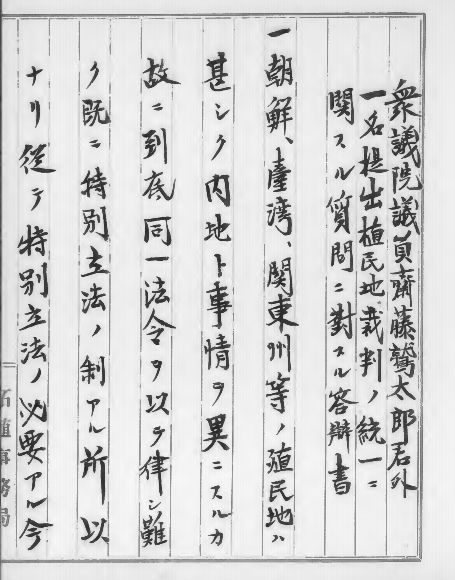 衆議院議員齋藤鷲太郎君外
一名提出植民地裁判ノ統一ニ
関スル質問ニ對スル答辯書
一朝鮮、臺湾、関東州等ノ殖民地ハ
甚シク内地ト事情ヲ異ニスルカ
故ニ到底同一法令ヲ以テ律シ難
ク既ニ特別立法ノ制アル所以
ナリ從テ特別立法ノ必要アル今
拓殖事務局